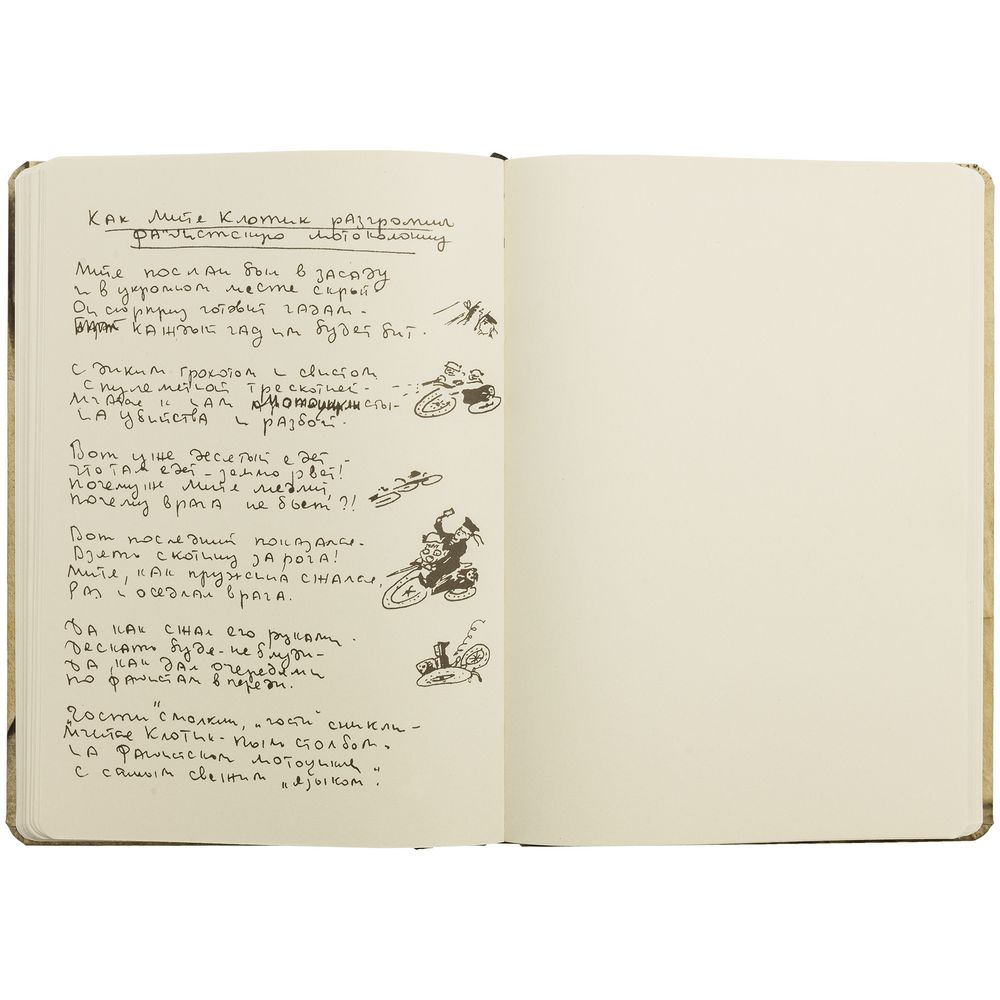 Как Митя Клотик разгромил
фашистскую мотоколонну
Митя послан был в засаду
и в укромном месте скрыт
Он сюрприз готовит гадам -
каждый гад им будет бит.
С диким грохотом и свистом
С пулеметной трескотней -
Мчатся к нам мотоциклисты -
на убийства и разбой.
Вот уже десятый едет -
что там едет - землю рвет!
Почему ж Митя медлит,
почему врага не бьет?!
Вот последний показался -
Взять скотину за рога!
Митя, как пружина сжался,
Раз и оседлал врага.
Да как сжал его руками -
Дескать будя - не блуди -
Да как дал очередями
по фашистам впереди.
"Гости" смолкли, "гости" сникли -
Мчится Клотик - пыль столбом.
на фашистском мотоцикле
с самым свежим "языком".